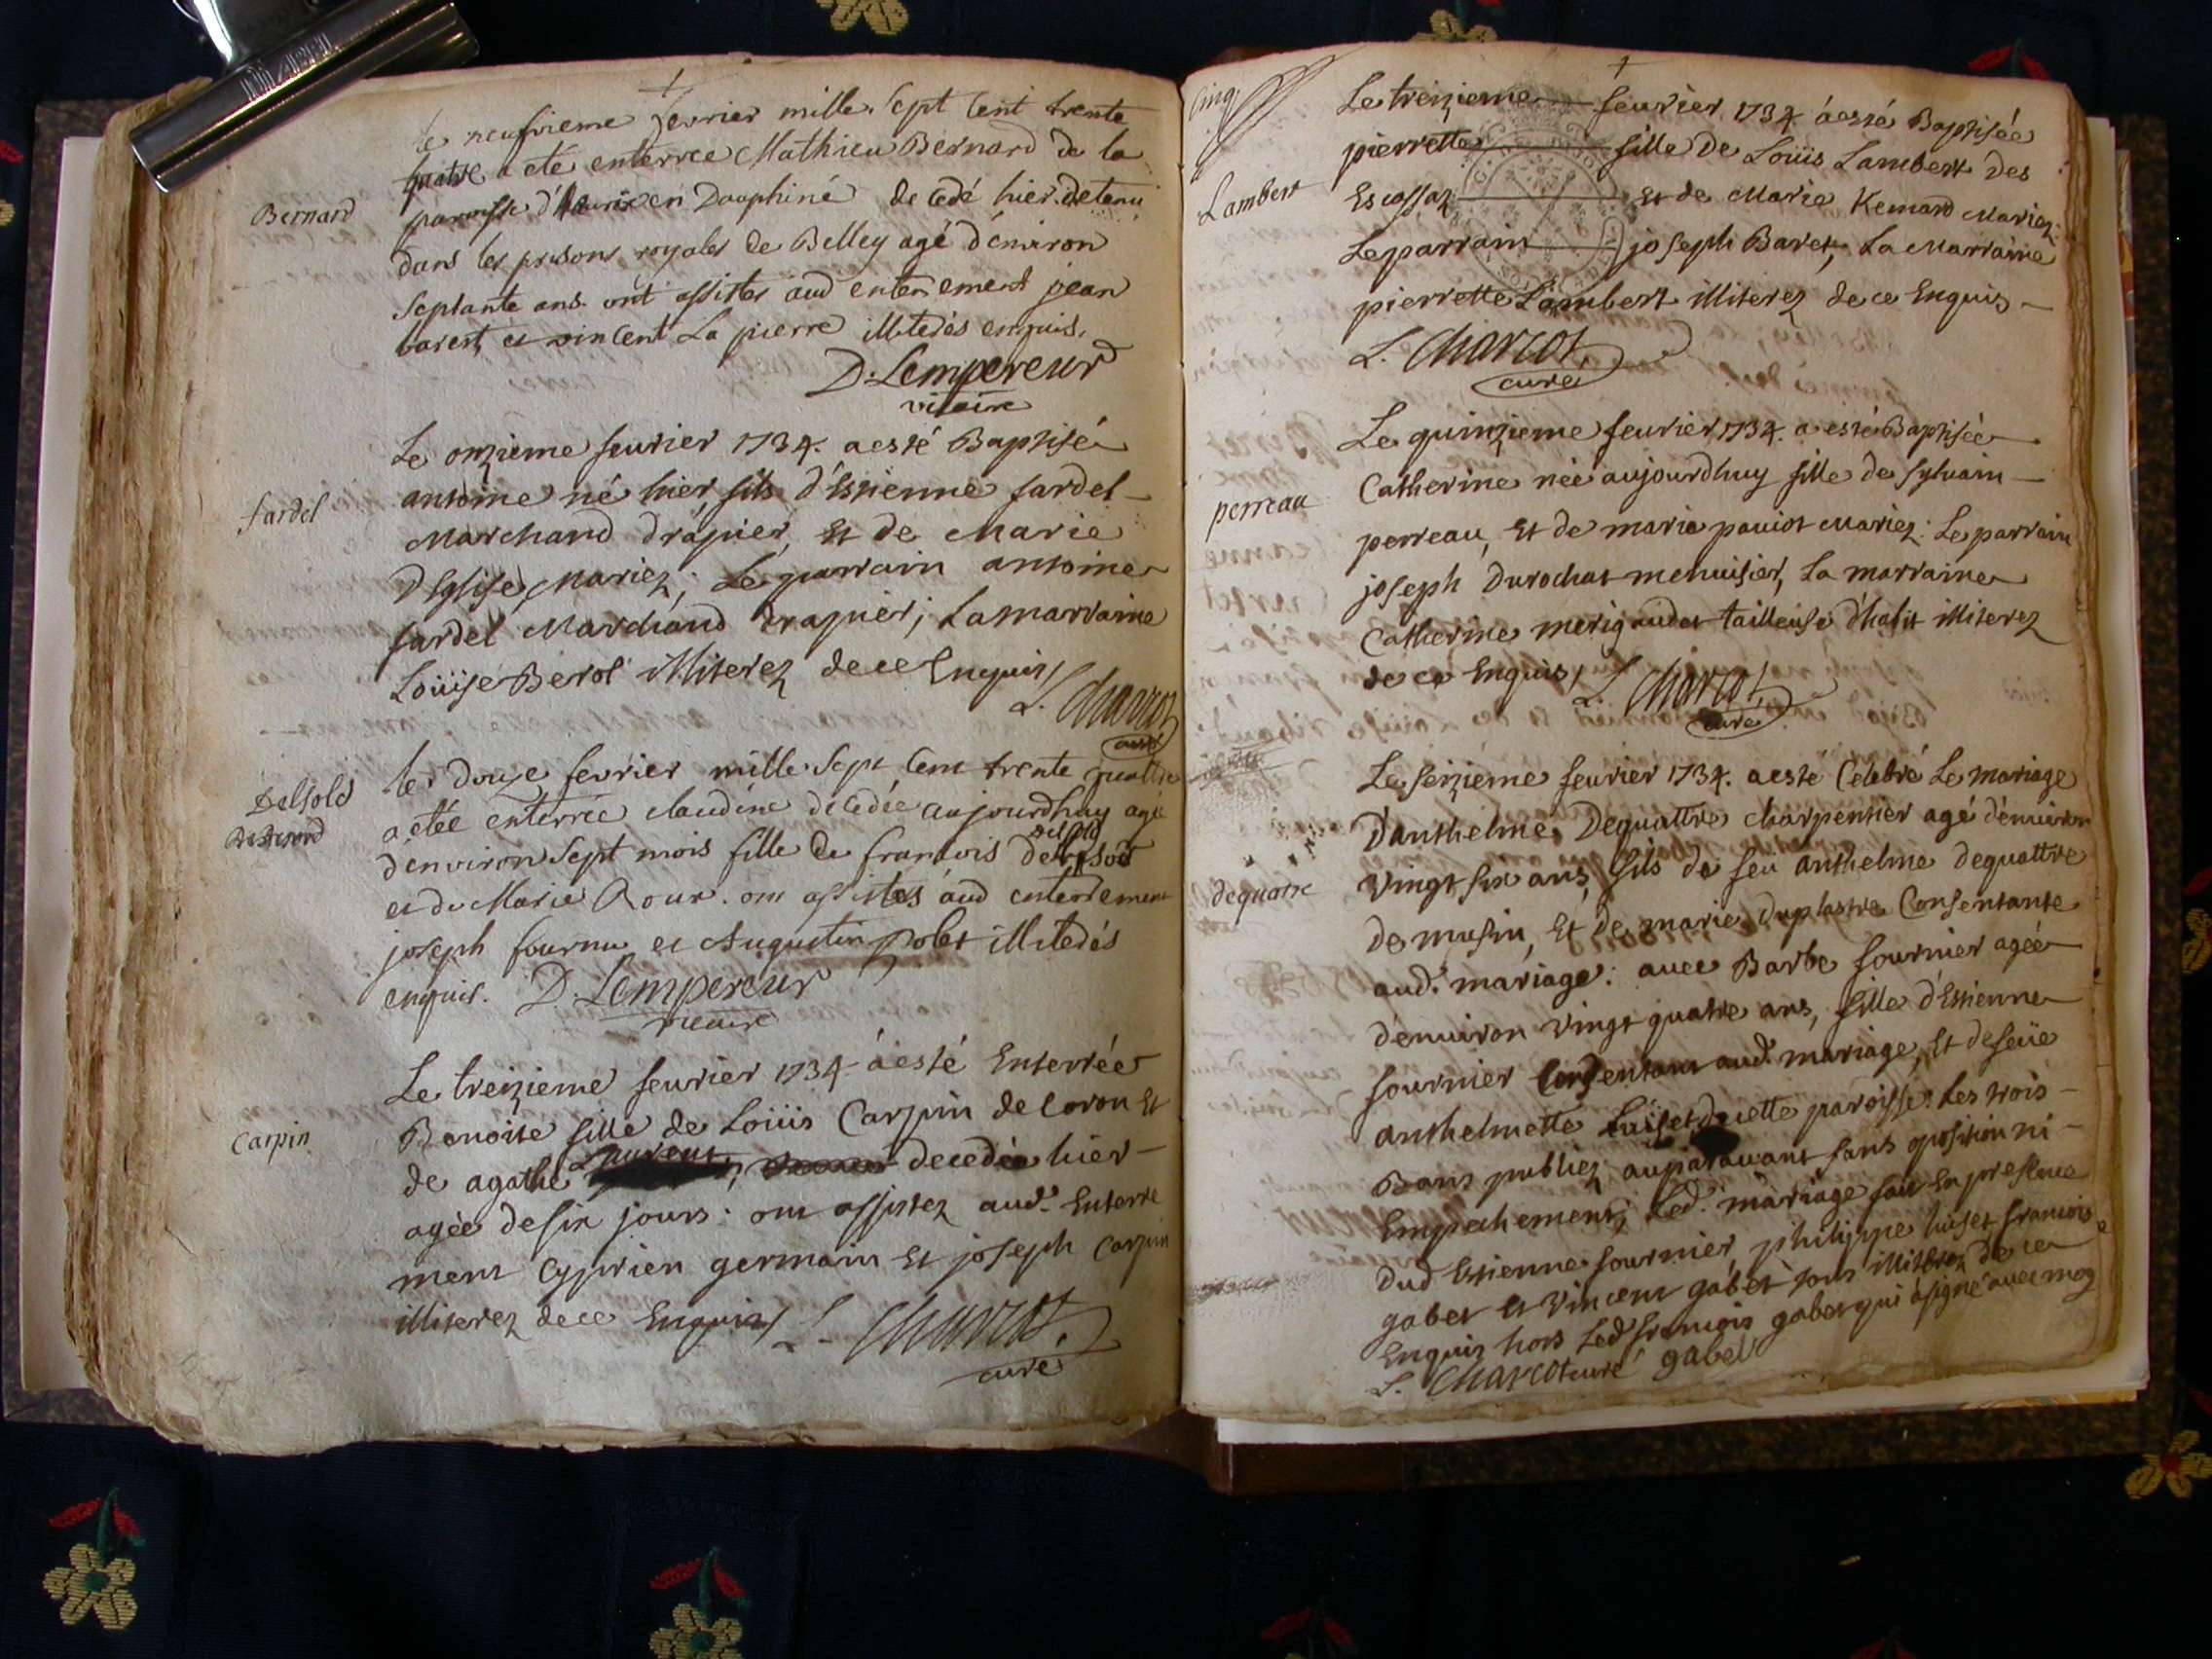 le neufvieme fevrier mille sept cent trente
quatre a eté enterree Mathieu Bernard de la
Bernard
paroisse en Dauphiné, decedé hier detenu
dans les prisons royales de Belley agé d'environ
septante ans. ont assistes aud enterrement jean
baret, et vincent La pierre illiterés enquis.
D. Lempereur
vicaire
Le onzieme feurier 1734. a esté Baptisé
antoine né hier, fils d'Estienne fardel
fardel
Marchand drapier, Et de Marie
D'Eglise, Mariez; Le parrain antoine
fardel Marchand Drapier; La marraine
Loüise Berot illiterez de ce Enquis/
L. Charcot
curé
Delsold
le douze fevrier mille sept cent trente quattre
a etée enterrée claudine decedée aujourdhuy agé
d'environ sept mois fille de francois delsold
et de Marie Roux. ont assistes aud enterrement
joseph fournie et Augustin Polet illiterés
enquis. D. Lempereur
vicaire
Le treizieme feurier 1734 a esté Enterrée
Benoite fille de Loüis Carpin de Coron Et
Carpin
de agathe decedée hier
agée de six jours: ont assistez aud. Enterre
ment Cyprien germain Et joseph Carpin
illiterez de ce Enquis/ L. Charcot
curé
cinq
Le treizieme feurier 1734 a esté Baptisée
pierrette fille de Loüis Lambert des
Lambert
Escassaz Et de Marie Kemard Mariez:
Le parrain joseph Baret, La Marraine
pierrette Lambert illiterez de ce Enquis
L. Charcot
curé
Le quinzieme feurier 1734. a esté Baptisée
Catherine née aujourdhuy fille de sylvain
perreau
perreau, Et de marie pauiot Mariez: Le parrain
joseph Durochat menuisier, La marraine
Catherine merigaudet tailleuse d'habit illiterez
de ce Enquis/ L. Charcot
curé
Le seizieme feurier 1734. a esté Celebré Le mariage
D'anthelme Dequattre charpentier agé d'enuiron
dequatre
vingt six ans, fils de feu anthelme dequattre
de musin, Et de marie duplastre Consentante
aud. mariage: auec Barbe fournier agée
d'enuiron vingt quatre ans, fille d'Estienne
fournier Consentant aud. mariage, Et de feüe
anthelmette Luiset de cette paroisse: Les trois
Bans publiez auparauant sans oposition ni
Empechement; Led. mariage fait En presence
dud Estienne fournier, philippe luiset francois
gabet Et vincent gabet tous illiterez de ce
Enquis hors Led francois gabet qui a signé auec moy
L. Charcot curé gabet